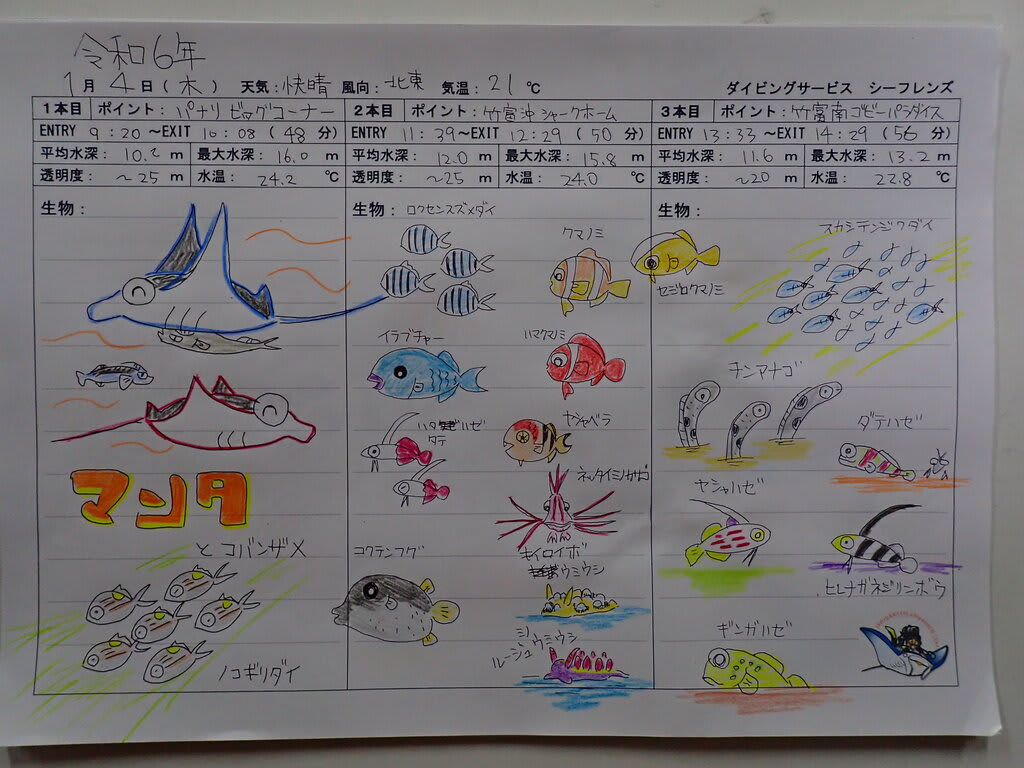 令和6年
1月4日(木) 天気:快晴 風向:北東 気温:21℃ ダイビングサービス シーフレンズ
1本目 ポイント:パナリ ビッグコーナー
ENTRY 9:20~EXIT 10:08(48分)
平均水深:10.2m 最大水深:16.0m
透明度:~25m 水温:24.2℃
生物:
マンタ
とコバンザメ
ノコギリダイ
2本目 ポイント:竹富沖シャークホーム
ENTRY 11:39~EXIT 12:29(50分)
平均水深:12.0m 最大水深:15.8m
透明度:~25m 水温:24.0℃
生物:ロクセンスズメダイ
クマノミ
セジロクマノミ
イラブチャー
ハマクマノミ
ハタタテハゼ
ヤシャベラ
ネッタイミノカサゴ
コクテンフグ
キイロイボ
ウミウシ
ミノウミウシ
3本目 ポイント:竹富南ゴビーパラダイス
ENTRY 13:33~EXIT 14:29(56分)
平均水深:11.6m 最大水深:13.2m
透明度:~20m 水温:22.8℃
生物:
スカシテンジクダイ
チンアナゴ
ダテハゼ
ヤシャハゼ
ヒレナガネジリンボウ
ギンガハゼ